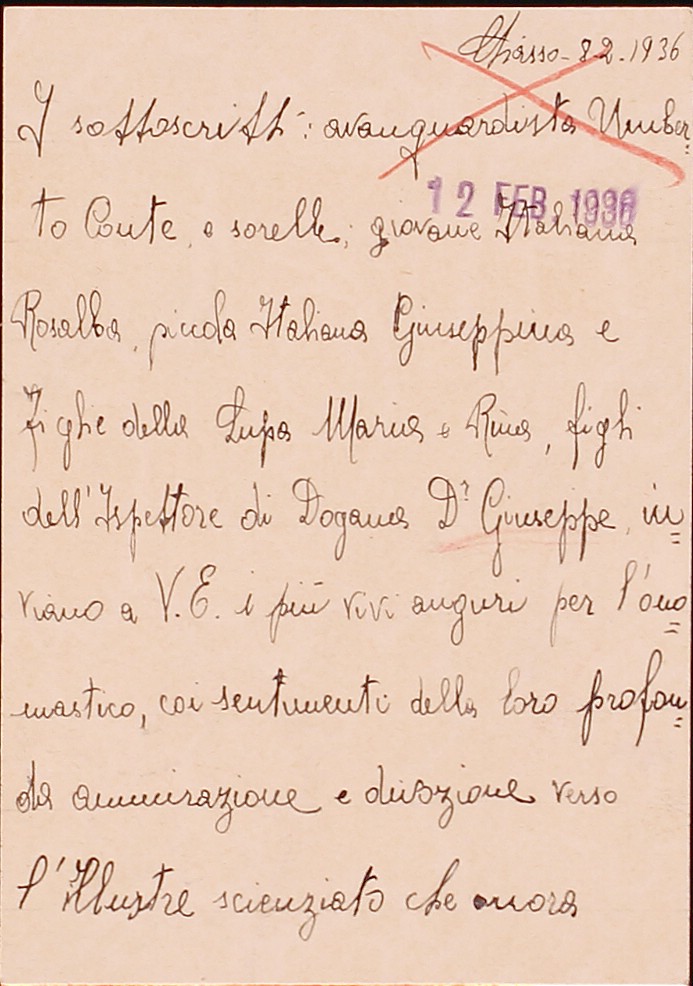 Chiasso - 8.2.1936
I sottoscritti: avanguardista Umber=
12 FEB 1936
to Conte, e sorelle; giovane Italiana
Rosalba, piccola Italiana Giuseppina e
Figlie della Lupa Maria e Rina, figli
dell'Ispettore di Dogana Dr Giuseppe, in=
viano a V.E. i più vivi auguri per l'ono=
mastico, coi sentimenti della loro profon=
da ammirazione e divozione verso
l'Illustre scienziato che onora